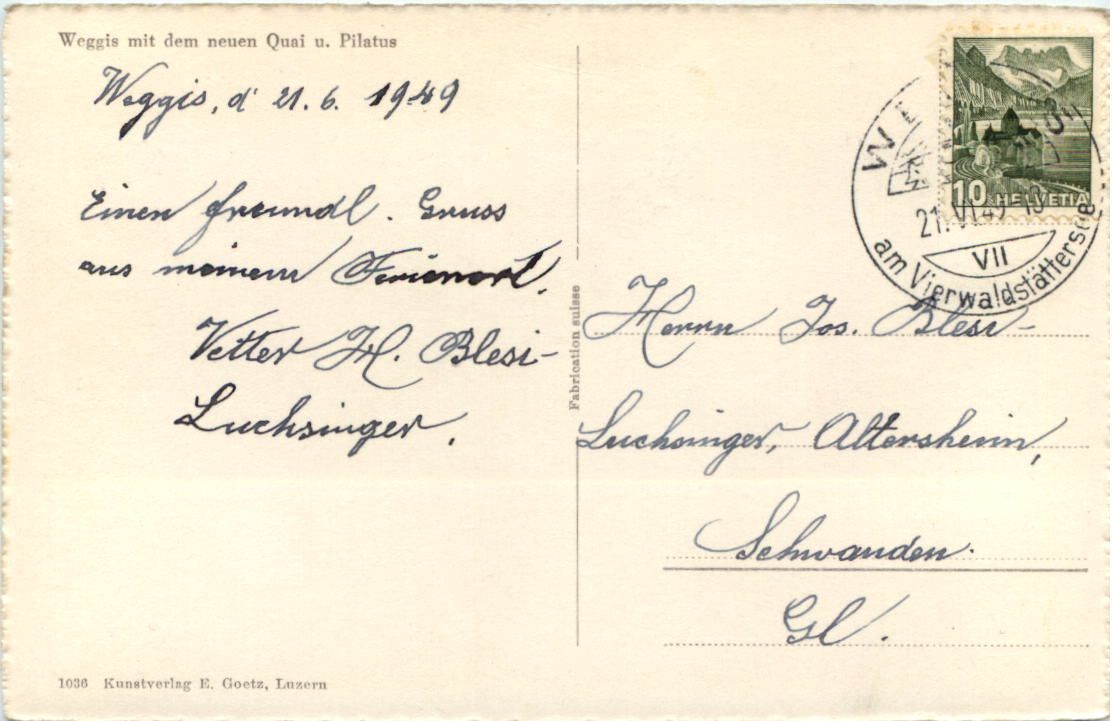 Weggis mit dem neuen Quai u. Pilatus
Weggis, d' 21. 6. 1949
Einen freundl. Gruss
aus meinem Ferienort.
Vetter H. Blesi-
Luchsinger.
Fabrication suisse
10 HELVETIA
21. VI 49
VII
am Vierwaldstättersee
Herrn Jos. Blesi-
Luchsinger, Altersheim,
Schwanden.
Gl.
1036 Kunstverlag E. Goetz, Luzern